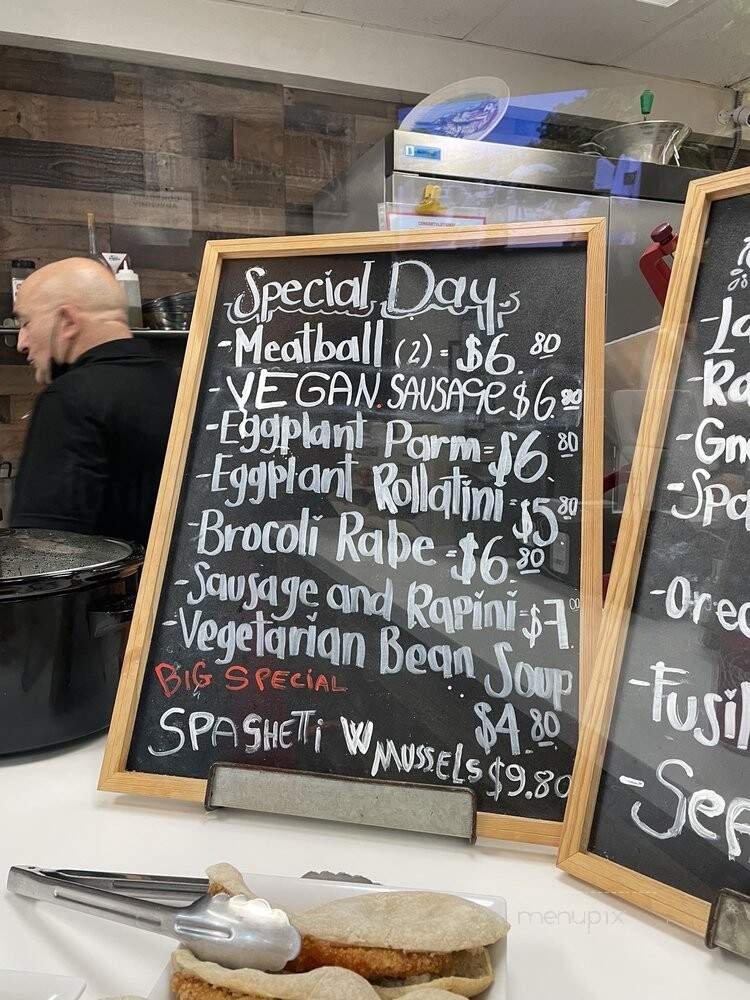 Special Day
-Meatball (2)=$6.80
-VEGAN.SAUSAGE $6.80
-Eggplant Parm=$6.80
-Eggplant Rollatini=$5.80
-Brocoli Rabe=$6.80
-Sausage and Rapini=$7.00
-Vegetarian Bean Soup
$4.80
BIG SPECIAL
SPAGHETTi W MUSSELS $9.80
-Orec
-Fusil
menupix